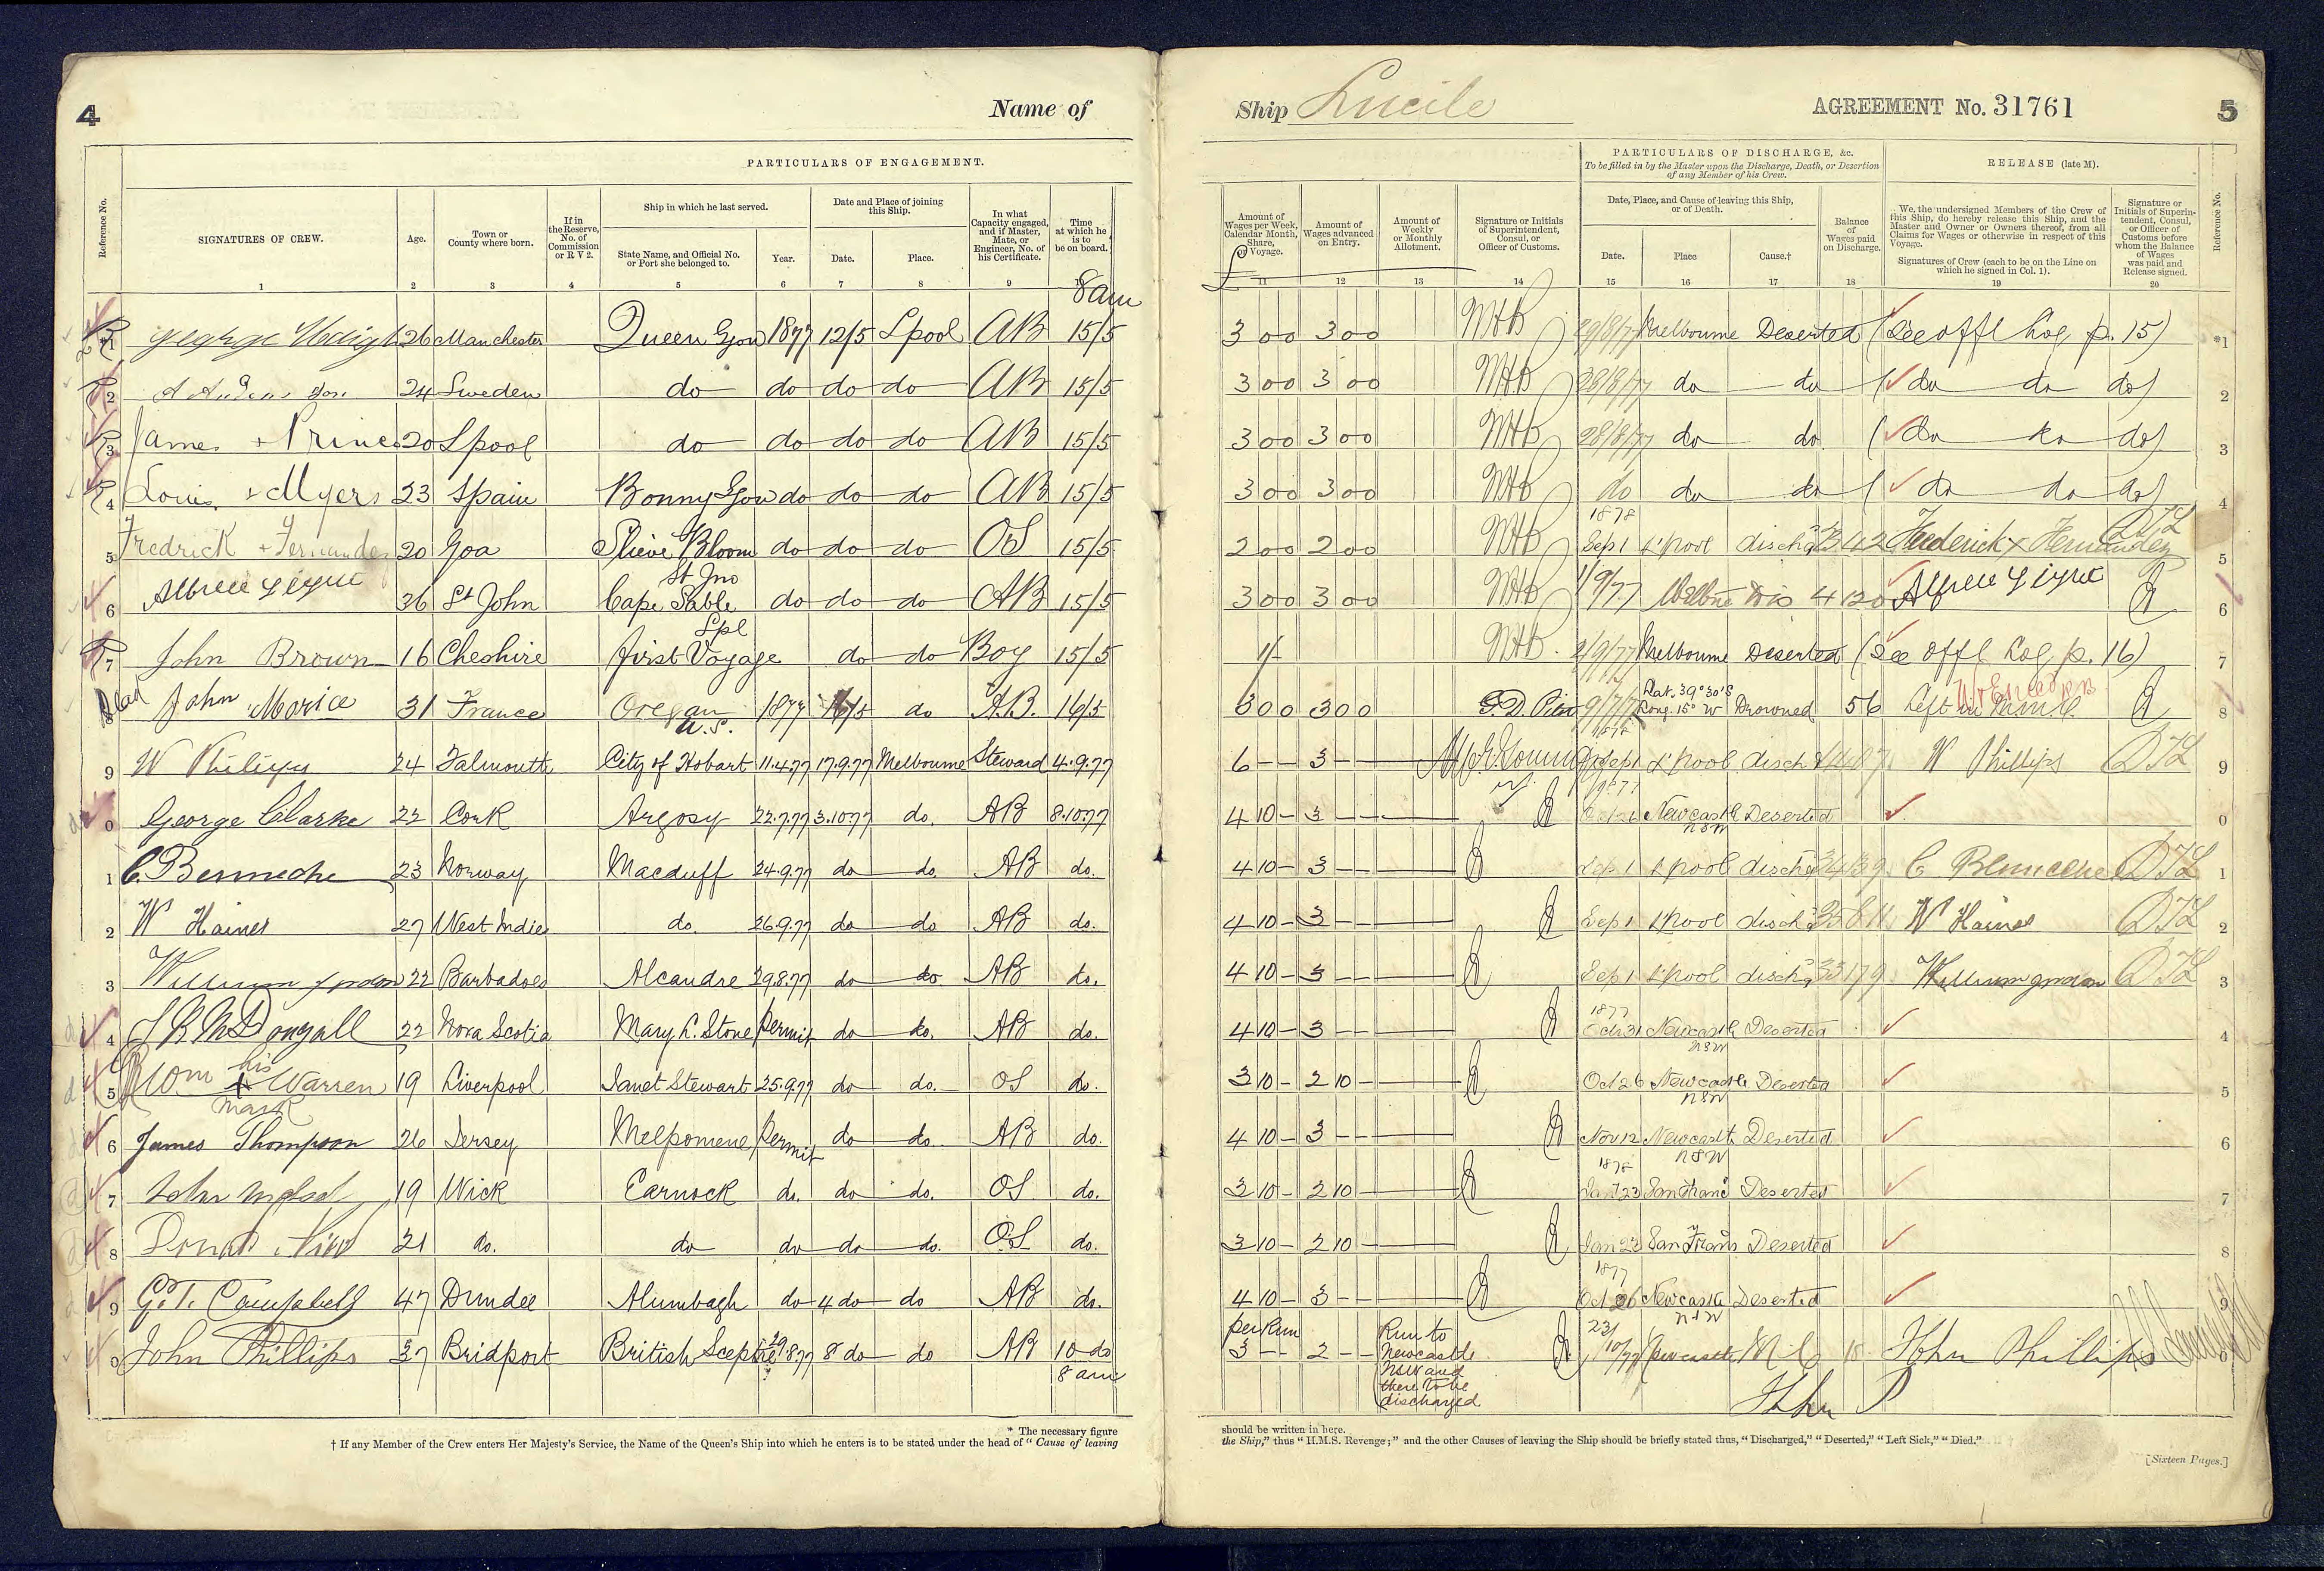 4 Name of Ship Lucile AGREEMENT No. 31761 5
PARTICULARS OF ENGAGEMENT.
PARTICULARS OF DISCHARGE, &c.
To be filled in by the Master upon the Discharge, Death, or Desertion
of any Member of his Crew.
RELEASE (late M).
Reference No.
SIGNATURES OF CREW.
Age.
Town or
County where born.
If in
the Reserve,
No. of
Commission
or R V 2.
Ship in which he last served.
State Name, and Official No.
or Port she belonged to.
Year.
Date and Place of joining
this Ship.
Date.
Place.
In what
Capacity engaged,
and if Master,
Mate, or
Engineer, No. of
his Certificate.
Time
at which he
is to
be on board.
Amount of
Wages per Week,
Calendar Month,
Share,
or Voyage.
Amount of
Wages advanced
on Entry.
Amount of
Weekly
or Monthly
Allotment.
Signature or Initials
of Superintendent,
Consul, or
Officer of Customs.
Date, Place, and Cause of leaving this Ship,
or of Death.
Date.
Place
Cause.†
Balance
of
Wages paid
on Discharge.
We, the undersigned Members of the Crew of
this Ship, do hereby release this Ship, and the
Master and Owner or Owners thereof, from all
Claims for Wages or otherwise in respect of this
Voyage.
Signatures of Crew (each to be on the Line on
which he signed in Col. 1).
Signature or
Initials of Superin-
tendent, Consul,
or Officer of
Customs before
whom the Balance
of Wages
was paid and
Release signed.
Reference No.
1 2 3 4 5 6 7 8 9 11 12 13 14 15 16 17 18 19 20
£
8 am
*1 george 26 Manchester Queen Gow 1877 12/5 Lpool AB 15/5 3 00 3 00 MHB 29/8/77 Melbourne Deserted (See offl Log p. 15) *1
2 24 Sweden do do do do AB 15/5 3 00 3 00 MHB 28/8/77 do do (do do do) 2
3 James + Prince 20 Lpool do do do do AB 15/5 3 00 3 00 MHB 28/8/77 do do (do do do) 3
4 Louis + Myers 23 Spain Bonny Gow do do do AB 15/5 3 00 3 00 MHB do do do (do do do) 4
1878
5 Fredrick + Fernandes 20 Goa Slieve Bloom do do do OS 15/5 2 00 2 00 MHB Sep 1 L'pool dischd Frederick x Fernandez DTL 5
St Jno
6 36 St John Cape Sable do do do AB 15/5 3 00 3 00 MHB 1/9/77 Dis 6
Lpl
7 John Brown 16 Cheshire first Voyage do do Boy 15/5 1/- MHB 2/9/77 Melbourne Deserted (See Offl Log p. 16) 7
Dead
Lat. 39°30'S
8 John Morice 31 France Oregan 1877 16/5 do A.B. 16/5 3 00 3 00 9/7/77 Long. 15° W Drowned 56 Left in 8
U.S.
9 W Philips 24 Falmouth City of Hobart 11.4.77 17.9.77 Melbourne Steward 4.9.77 6 - - 3 - - Sep 1 L'pool disch W Phillips DTL 9
1877
0 George Clarke 22 Cork Argosy 22.7.77 3.10.77 do. AB 8.10.77 4 10 - 3 - - Newcastle Deserted 0
NSW
1 23 Norway Macduff 24.9.77 do do. AB do. 4 10 - 3 - - Sep 1 L'pool dischd DTL 1
2 W Haines 27 West Indies do. 26.9.77 do do AB do. 4 10 - 3 - - Sep 1 L'pool dischd W Haines DTL 2
3 William 22 Barbadoes Alcandre 29.8.77 do do AB do. 4 10 - 3 - - Sep 1 L'pool dischd William DTL 3
1877
4 McDougall 22 Nova Scotia Mary L. Stone Permit do do. AB do. 4 10 - 3 - - Oct 31 Newcastle Deserted 4
NSW
his
5 Wm + Warren 19 Liverpool Janet Stewart 25.9.77 do do. OS do. 3 10 - 2 10 - Oct 26 Newcastle Deserted 5
mark
NSW
6 James Thompson 26 Jersey Melpomene Permit do do. AB do. 4 10 - 3 - - Nov 12 Newcastle Deserted 6
NSW
1878
7 John 19 Wick Earnock do. do do. OS do. 3 10 - 2 10 - Jan 23 San Franc Deserted 7
8 21 do. do do do do. OS do. 3 10 - 2 10 - Jan 23 San Frans Deserted 8
1877
9 G. T. Campbell 47 Dundee Alumbagh do 4 do do AB do. 4 10 - 3 - - Oct 26 Newcastle Deserted 9
NSW
per Run
Run to
23/
0 John Phillips 37 Bridport British Sceptre 29.8.77 8 do do AB 10 do 3 - - 2 - - Newcastle 10/77 Newcastle M C John Phillips 0
8 am
NSW and
there to be
discharged
John P
* The necessary figure should be written in here.
† If any Member of the Crew enters Her Majesty's Service, the Name of the Queen's Ship into which he enters is to be stated under the head of "Cause of leaving the Ship," thus "H.M.S. Revenge;" and the other Causes of leaving the Ship should be briefly stated thus, "Discharged," "Deserted," "Left Sick," "Died."
[Sixteen Pages.]